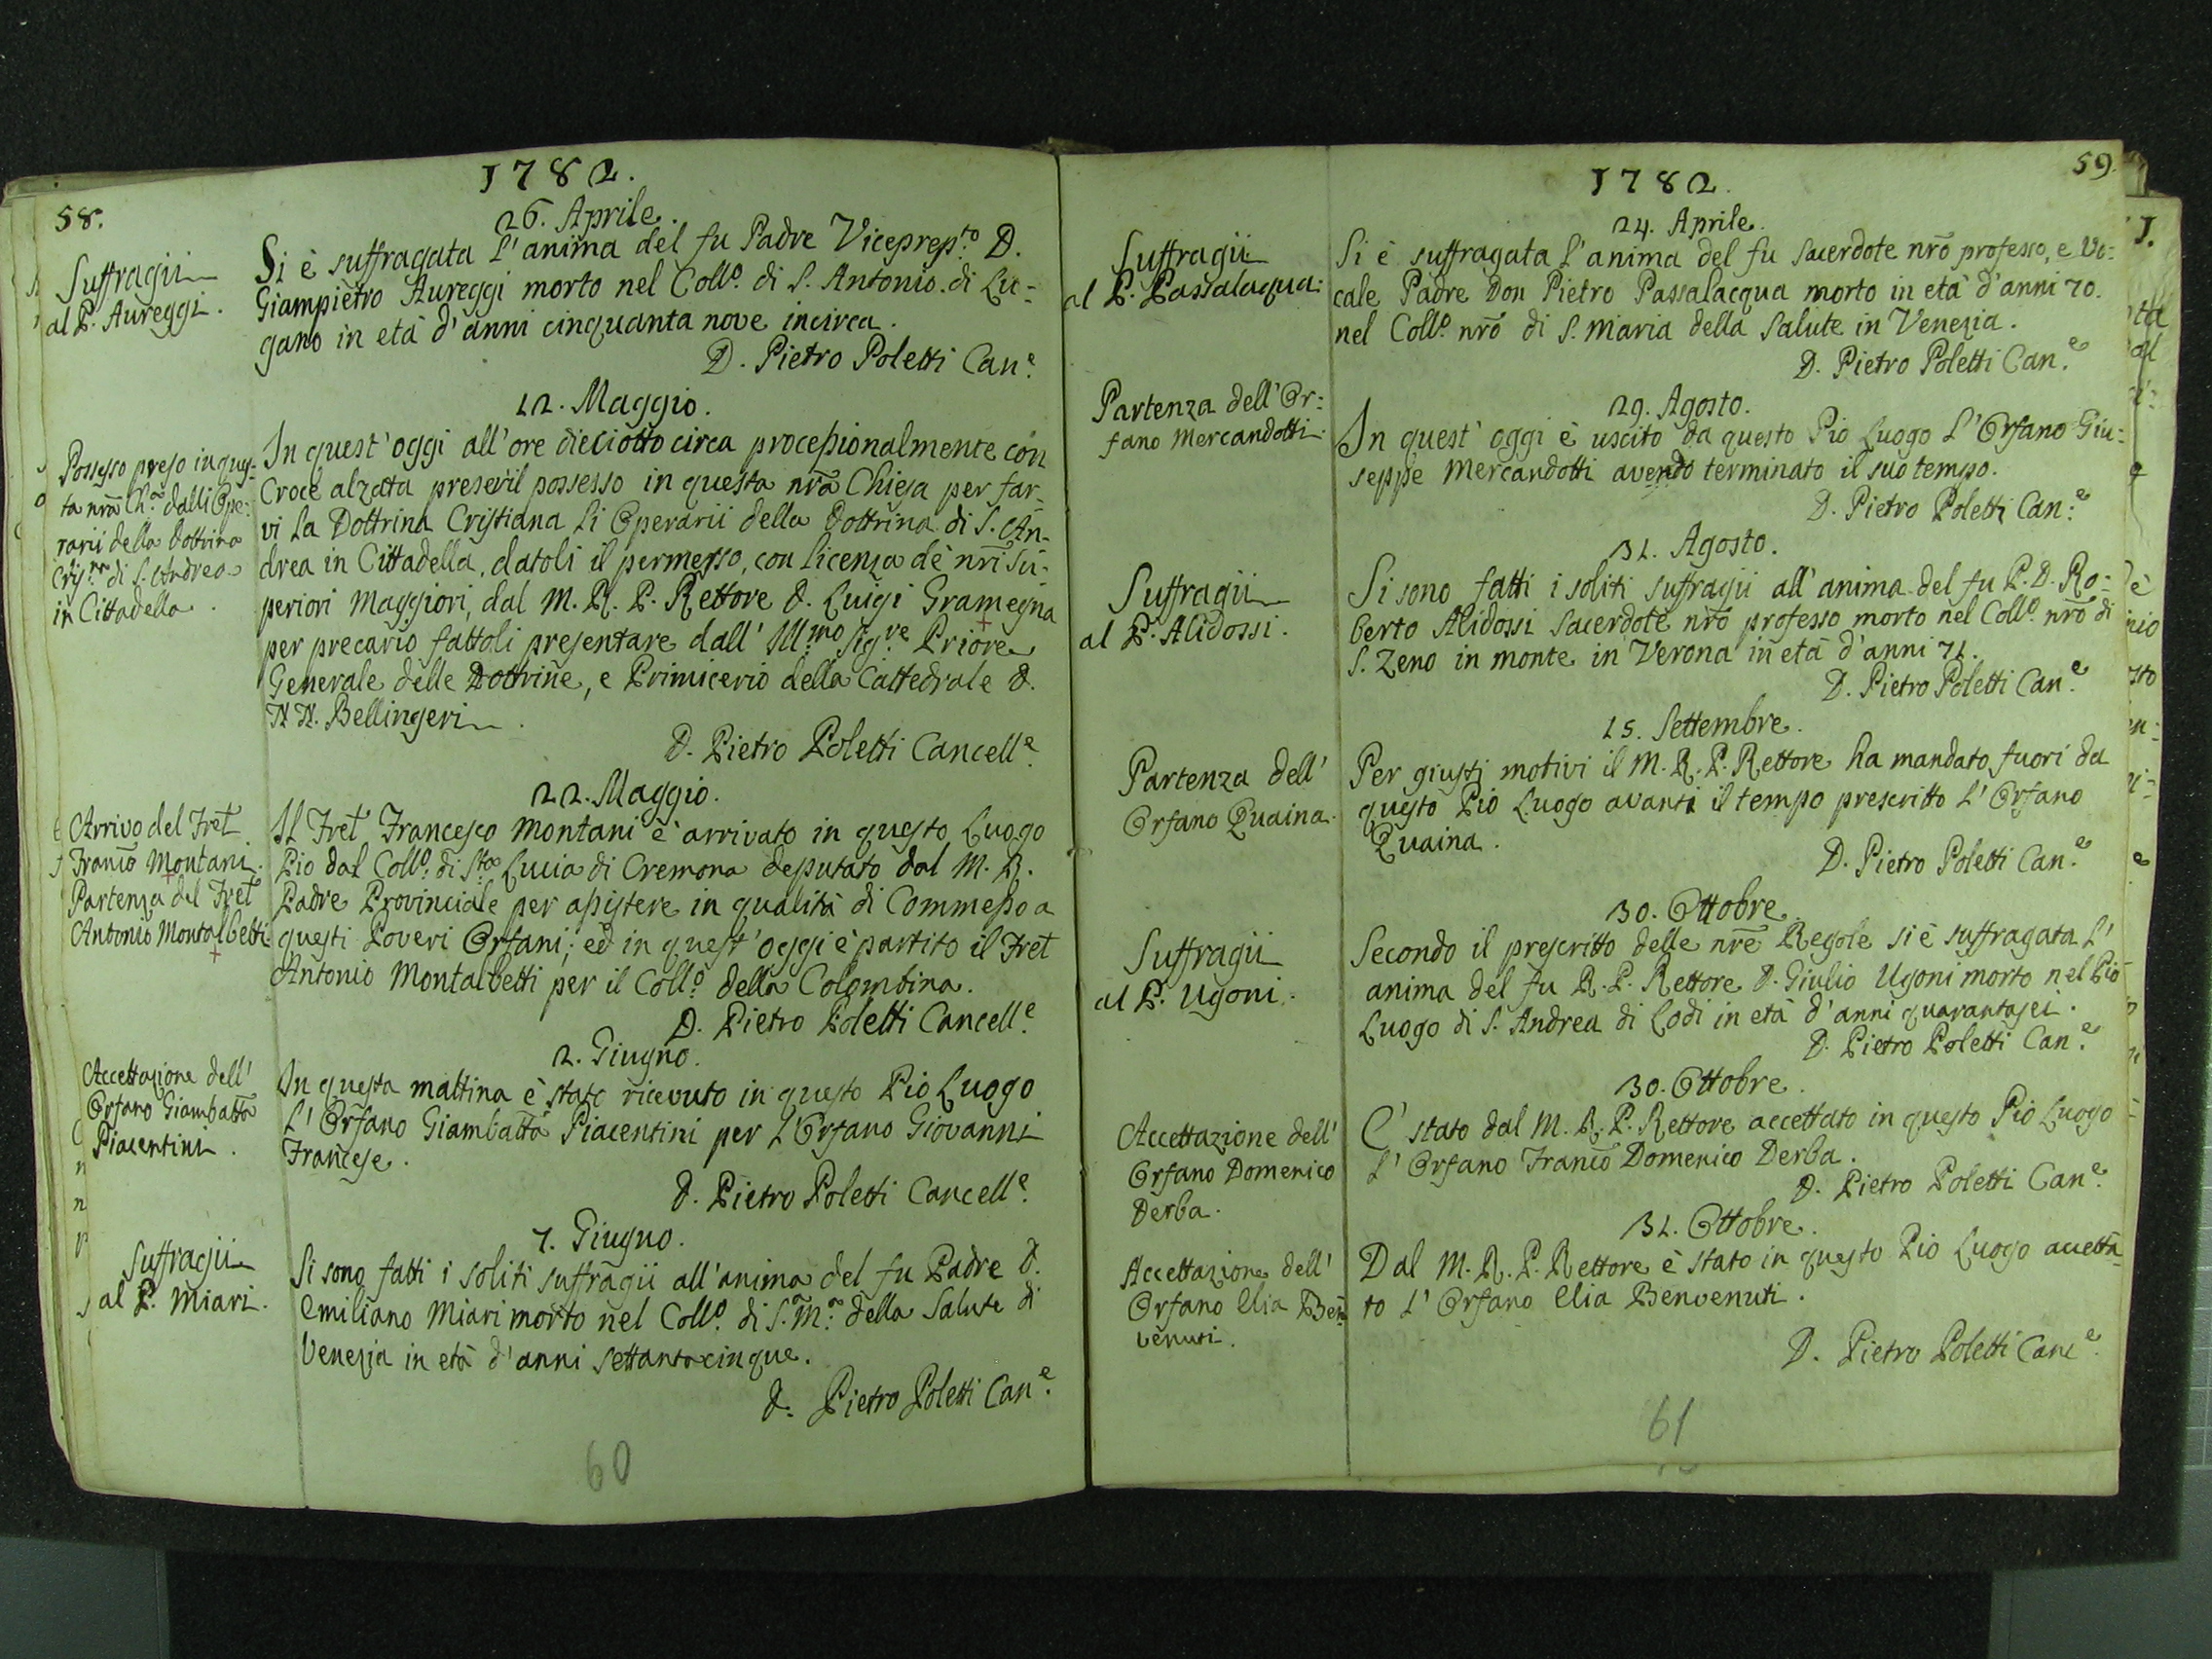 58.
1782.
26. Aprile.
Suffragii
al P. Aureggi.
Si è suffragata l'anima del fu Padre Viceprep.to D.
Giampietro Aureggi morto nel Coll.o di S. Antonio di Lu=
gano in età d'anni cinquanta nove incirca.
D. Pietro Poletti Can.e
12. Maggio.
Possesso preso in ques=
ta nrã Ch.a dalli Ope=
rarii della Dottrina
Cris.na di S. Andrea
in Cittadella.
In quest'oggi all'ore dieciotto circa processionalmente con
Croce alzata preser'il possesso in questa nrã Chiesa per far=
vi la Dottrina Cristiana li Operarii della Dottrina di S. An=
drea in Cittadella, datoli il permesso, con licenza de' nrĩ Su=
periori Maggiori, dal M. R. P. Rettore D. Luigi Gramegna
per precario fattoli presentare dall' Ill.mo Sig.re Priore
Generale delle Dottrine, e Primicerio della Cattedrale D.
N N. Bellingeri.
D. Pietro Poletti Cancell.e
22. Maggio.
Arrivo del Fret
Francõ Montani.
Partenza del Fret
Antonio Montalbetti.
Il Fret Francesco Montani è arrivato in questo Luogo
Pio dal Coll.o di S.ta Lucia di Cremona deputato dal M. R.
Padre Provinciale per assistere in qualità di Commesso a
questi Poveri Orfani; ed in quest'oggi è partito il Fret
Antonio Montalbetti per il Coll.o della Colombina.
D. Pietro Poletti Cancell.e
2. Giugno.
Accettazione dell'
Orfano Giambattã
Piacentini.
In questa mattina è stato ricevuto in questo Pio Luogo
l'Orfano Giambattã Piacentini per l'Orfano Giovanni
Francese.
D. Pietro Poletti Cancell.e
7. Giugno.
Suffragii
al P. Miari.
Si sono fatti i soliti suffragii all'anima del fu Padre D.
Emiliano Miari morto nel Coll.o di S. M.a della Salute di
Venezia in età d'anni settantacinque.
D. Pietro Poletti Can.e
60
59.
1782.
24. Aprile.
Suffragii
al P. Passalaqua.
Si è suffragata l'anima del fu Sacerdote nrõ professo, e Vo=
cale Padre Don Pietro Passalacqua morto in età d'anni 70.
nel Coll.o nrõ di S. Maria della Salute in Venezia.
D. Pietro Poletti Can.e
29. Agosto.
Partenza dell'Or=
fano Mercandotti.
In quest'oggi è uscito da questo Pio Luogo l'Orfano Giu=
seppe Mercandotti avendo terminato il suo tempo.
D. Pietro Poletti Can.e
31. Agosto.
Suffragii
al P. Alidossi.
Si sono fatti i soliti suffragii all'anima del fu P. D. Ro=
berto Alidossi Sacerdote nrõ professo morto nel Coll.o nrõ di
S. Zeno in monte in Verona in età d'anni 71.
D. Pietro Poletti Can.e
15. Settembre.
Partenza dell'
Orfano Quaina.
Per giusti motivi il M. R. P. Rettore ha mandato fuori da
questo Pio Luogo avanti il tempo prescritto l'Orfano
Quaina.
D. Pietro Poletti Can.e
30. Ottobre.
Suffragii
al P. Ugoni.
Secondo il prescritto delle nrẽ Regole si è suffragata l'
anima del fu R. P. Rettore D. Giulio Ugoni morto nel Pio
Luogo di S. Andrea di Lodi in età d'anni quarantasei.
D. Pietro Poletti Can.e
30. Ottobre.
Accettazione dell'
Orfano Domenico
Derba.
E' stato dal M. R. P. Rettore accettato in questo Pio Luogo
l'Orfano Francõ Domenico Derba.
D. Pietro Poletti Can.e
31. Ottobre.
Accettazione dell'
Orfano Elia Ben=
venuti.
Dal M. R. P. Rettore è stato in questo Pio Luogo accetta=
to l'Orfano Elia Benvenuti.
D. Pietro Poletti Canc.e
61